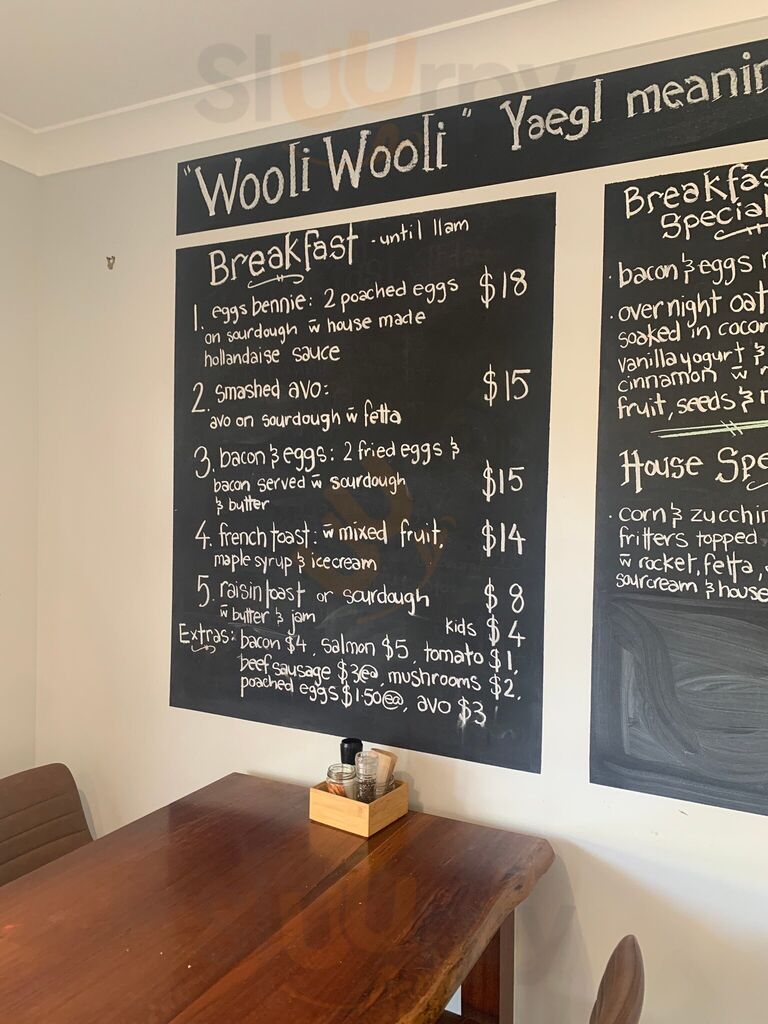 Sluurpy
"Wooli Wooli" Yaegl
Breakfast - until 11am
1. eggs bennie: 2 poached eggs $18
on sourdough w̄ house made
hollandaise sauce
2. smashed avo: $15
avo on sourdough w̄ fetta
3. bacon & eggs: 2 fried eggs &
bacon served w̄ sourdough $15
& butter
4. french toast: w̄ mixed fruit, $14
maple syrup & icecream
5. raisin toast or sourdough $8
w̄ butter & jam kids $4
Extras: bacon $4, salmon $5, tomato $1,
beef sausage $3@, mushrooms $2,
poached eggs $1.50@, avo $3
bacon & eggs
overnight
soaked in
vanilla yogurt &
cinnamon w̄
fruit, seeds &
House
corn &
fritters topped
w̄ rocket, fetta,
sourcream & house
Sluurpy